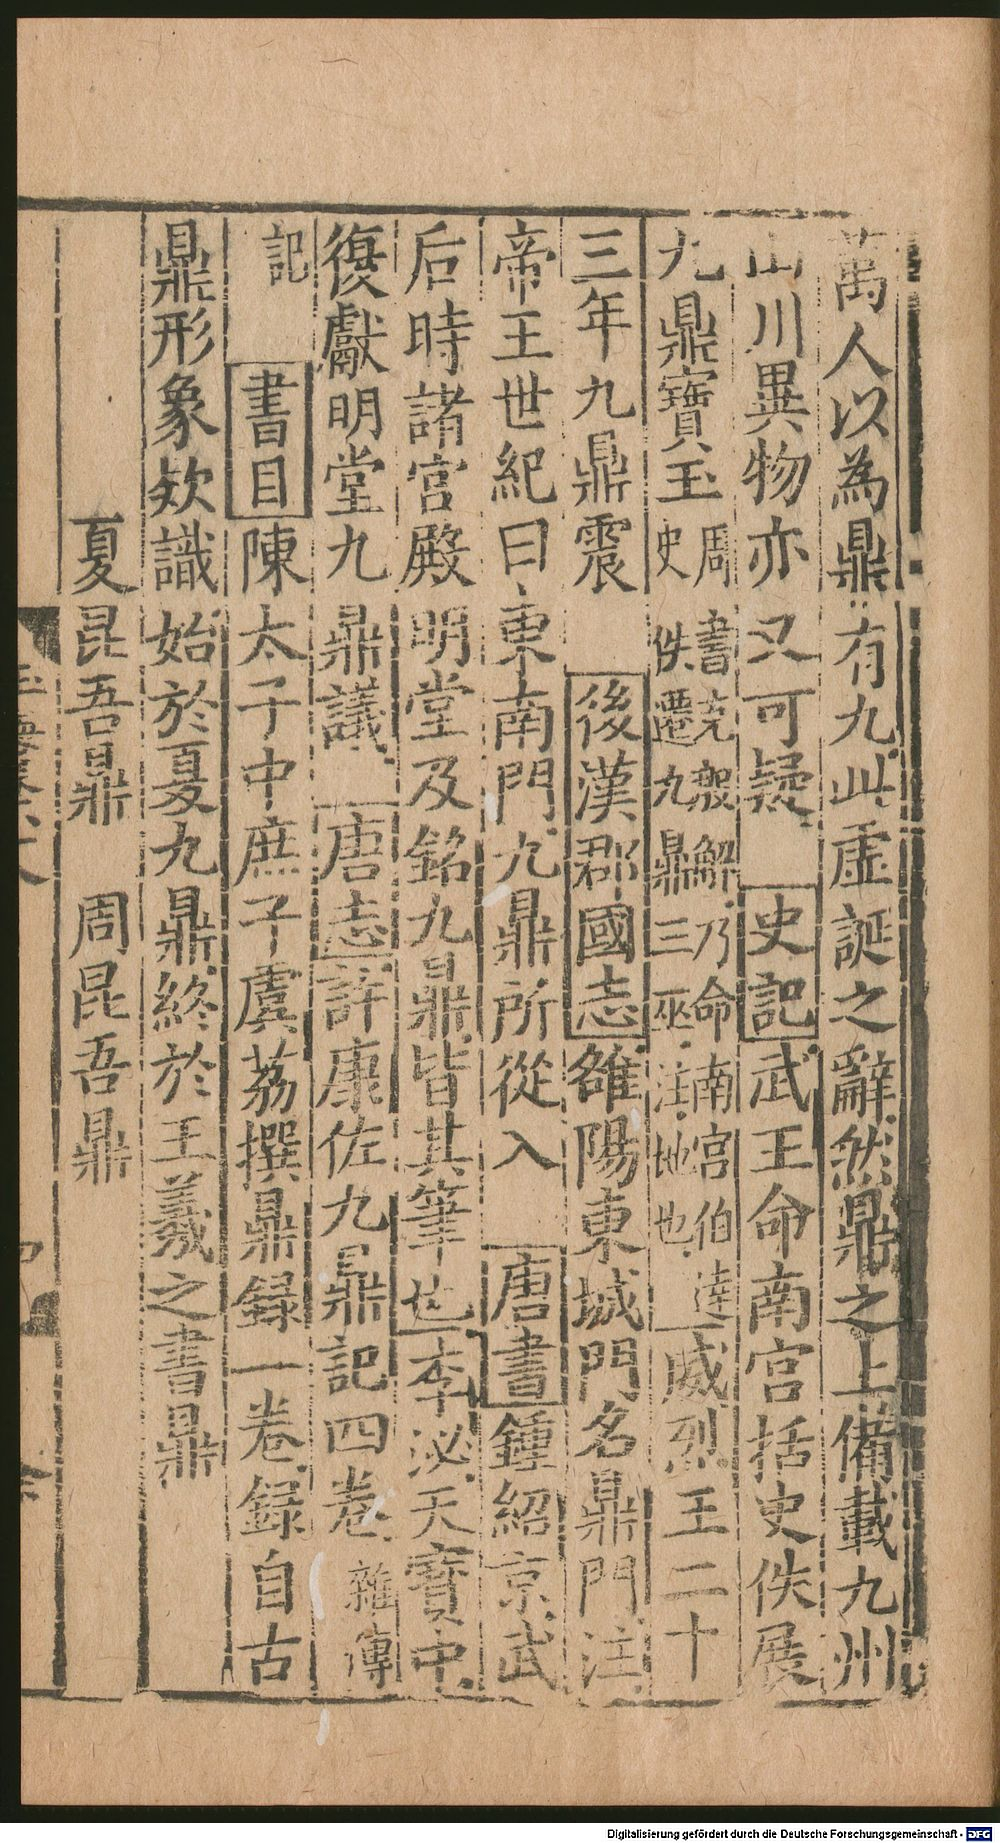 萬人以為鼎有九此虛誕之辭然鼎之上備載九州
山川異物亦又可疑 史記武王命南宮括史佚展
九鼎寶玉周書克殷解乃命南宮伯達史佚遷九鼎三巫注地也威烈王二十
三年九鼎震 後漢郡國志雒陽東城門名鼎門注
帝王世紀曰東南門九鼎所從入 唐書鍾紹京武
后時諸宮殿明堂及銘九鼎皆其筆也李泌天寶中
復獻明堂九鼎議 唐志許康佐九鼎記四卷雜傳
記 書目陳太子中庶子虞荔撰鼎録一卷録自古
鼎形象欵識始於夏九鼎終於王羲之書鼎
夏昆吾鼎 周昆吾鼎
Digitalisierung gefördert durch die Deutsche Forschungsgemeinschaft - DFG